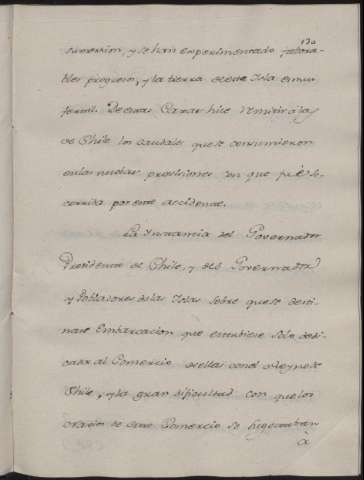 130
inversion, y se han experimentado favora-
bles progresos, y la tierra de esta Isla es muy
fertil. De estas Caxas hice remitir á las
de Chile los caudales que se consumieron
en las nuevas provisiones con que fué so-
corrida por este accidente.
La instancia del Governador
Presidente de Chile, y del Governador
y Pobladores de las Islas sobre que se desti-
nase Embarcacion que estubiese solo dedi-
cada al Comercio de ellas con el Reyno de
Chile, y la gran dificultad con que los
de este Comercio se
à